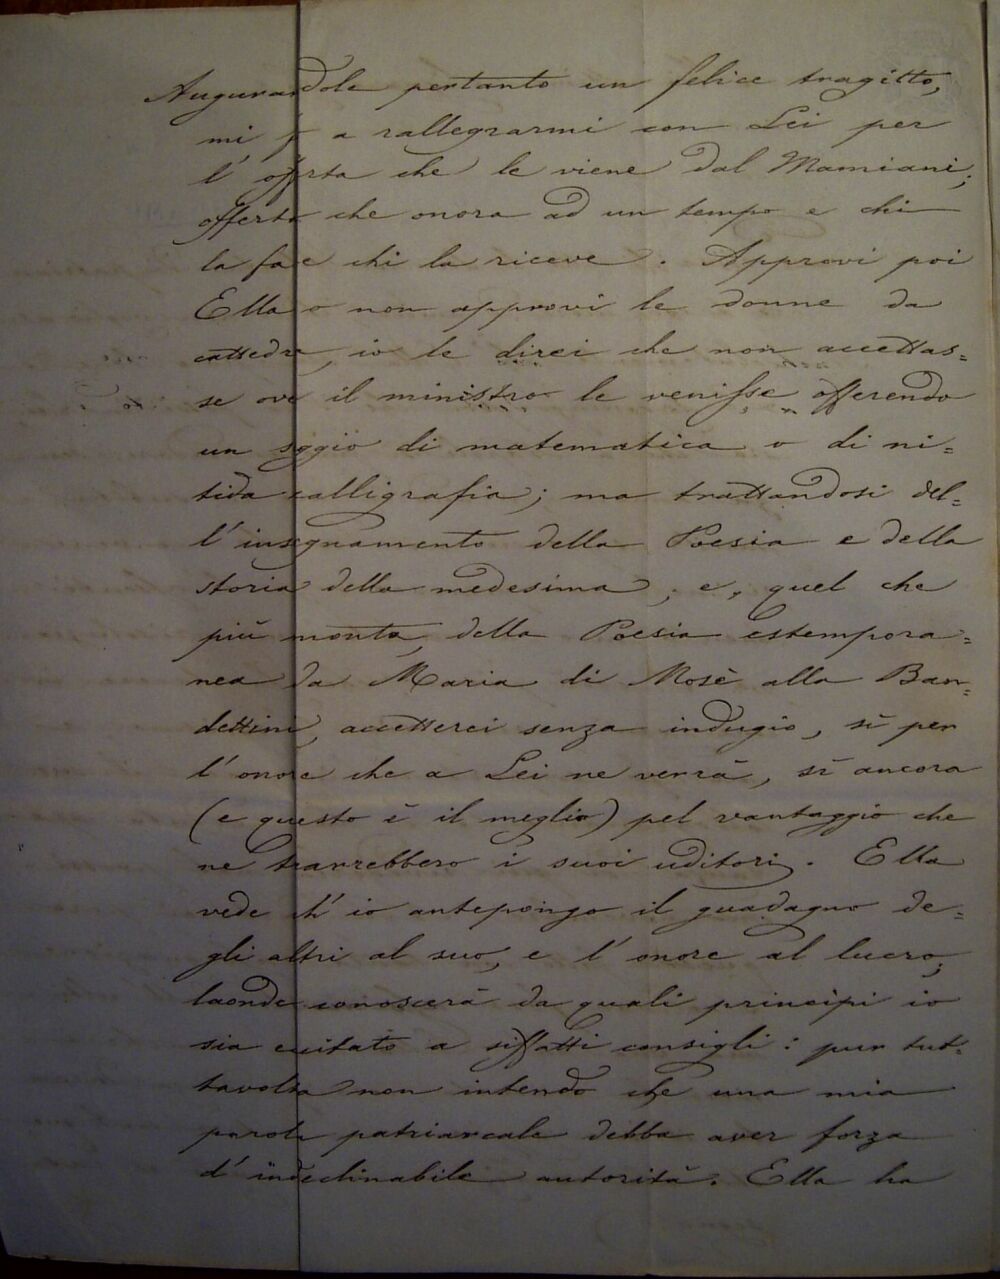 Augurandole pertanto un felice tragitto,
mi fo a rallegrarmi con Lei per
l'offerta che le viene dal Mamiani;
offerta che onora ad un tempo e chi
la fa e chi la riceve. Approvi poi
Ella o non approvi le donne da
cattedra, io le direi che non accettas=
se ove il ministro le venisse offerendo
un seggio di matematica o di ni=
tida calligrafia; ma trattandosi del=
l'insegnamento della Poesia e della
storia della medesima, e, quel che
più monta, della Poesia estempora=
nea da Maria di Mosè alla Ban=
dettini, accetterei senza indugio, sì per
l'onore che a Lei ne verrà, sì ancora
(e questo è il meglio) pel vantaggio che
ne trarrebbero i suoi uditori. Ella
vede ch'io antepongo il guadagno de=
gli altri al suo, e l'onore al lucro;
laonde conoscerà da quali principi io
sia excitato a siffatti consigli: pur tut=
tavolta non intendo che una mia
parola patriarcale debba aver forza
d'indeclinabile autorità. Ella ha